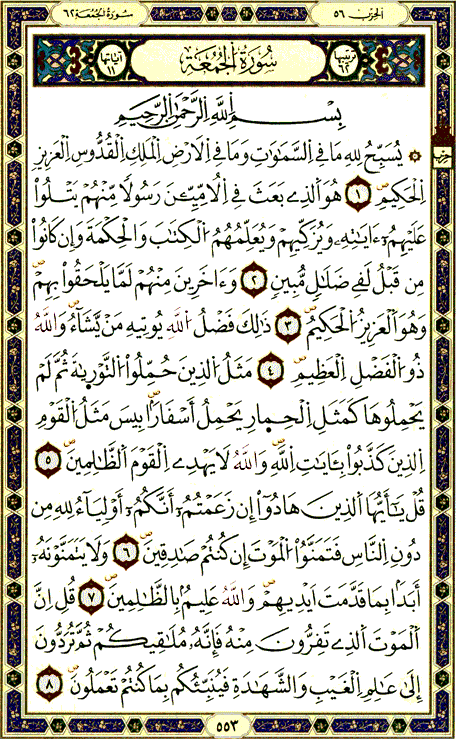 الحزب ٥٦
سورة الجمعة ٦٢
ترتيبها ٦٢ سُورَةُ الْجُمُعَةِ آياتها ١١
بِسْمِ اللَّهِ الرَّحْمَٰنِ الرَّحِيمِ
۞ يُسَبِّحُ لِلهِ مَا فِي السَّمَٰوَٰتِ وَمَا فِي اِلَارْضِ اِلْمَلِكِ اِلْقُدُّوسِ اِلْعَزِيزِ
اِلْحَكِيمِۖ ١ هُوَ اَلذِے بَعَثَ فِي اِلُامِّيِّـۧنَ رَسُولٗا مِّنْهُمْ يَتْلُواْ
عَلَيْهِمُۥٓ ءَايَٰتِهِۦ وَيُزَكِّيهِمْ وَيُعَلِّمُهُمُ اُلْكِتَٰبَ وَالْحِكْمَةَ وَإِن كَانُواْ
مِن قَبْلُ لَفِے ضَلَٰلٖ مُّبِينٖ ٢ وَءَاخَرِينَ مِنْهُمْ لَمَّا يَلْحَقُواْ بِهِمْۖ
وَهُوَ اَلْعَزِيزُ اُلْحَكِيمُۖ ٣ ذَٰلِكَ فَضْلُ اُللَّهِ يُوتِيهِ مَنْ يَّشَآءُۖ وَاللَّهُ
ذُو اُلْفَضْلِ اِلْعَظِيمِۖ ٤ مَثَلُ اُلذِينَ حُمِّلُواْ اُلتَّوْر۪ىٰةَ ثُمَّ لَمْ
يَحْمِلُوهَا كَمَثَلِ اِلْحِم۪ارِ يَحْمِلُ أَسْفَاراَۢۖ بِيسَ مَثَلُ اُلْقَوْمِ
اِلذِينَ كَذَّبُواْ بِـَٔايَٰتِ اِللَّهِۖ وَاللَّهُ لَا يَهْدِے اِلْقَوْمَ اَلظَّٰلِمِينَۖ ٥
قُلْ يَٰٓأَيُّهَا اَلذِينَ هَادُوٓاْ إِن زَعَمْتُمُۥٓ أَنَّكُمُۥٓ أَوْلِيَآءُ لِلهِ مِن
دُونِ اِلنَّاسِ فَتَمَنَّوُاْ اُلْمَوْتَ إِن كُنتُمْ صَٰدِقِينَۖ ٦ وَلَا يَتَمَنَّوْنَهُۥٓ
أَبَداَۢ بِمَا قَدَّمَتَ اَيْدِيهِمْۖ وَاللَّهُ عَلِيمُۢ بِالظَّٰلِمِينَۖ ٧ قُلِ اِنَّ
اَلْمَوْتَ اَلذِے تَفِرُّونَ مِنْهُ فَإِنَّهُۥ مُلَٰقِيكُمْ ثُمَّ تُرَدُّونَ
إِلَىٰ عَٰلِمِ اِلْغَيْبِ وَالشَّهَٰدَةِ فَيُنَبِّئُكُم بِمَا كُنتُمْ تَعْمَلُونَۖ ٨
٥٥٣